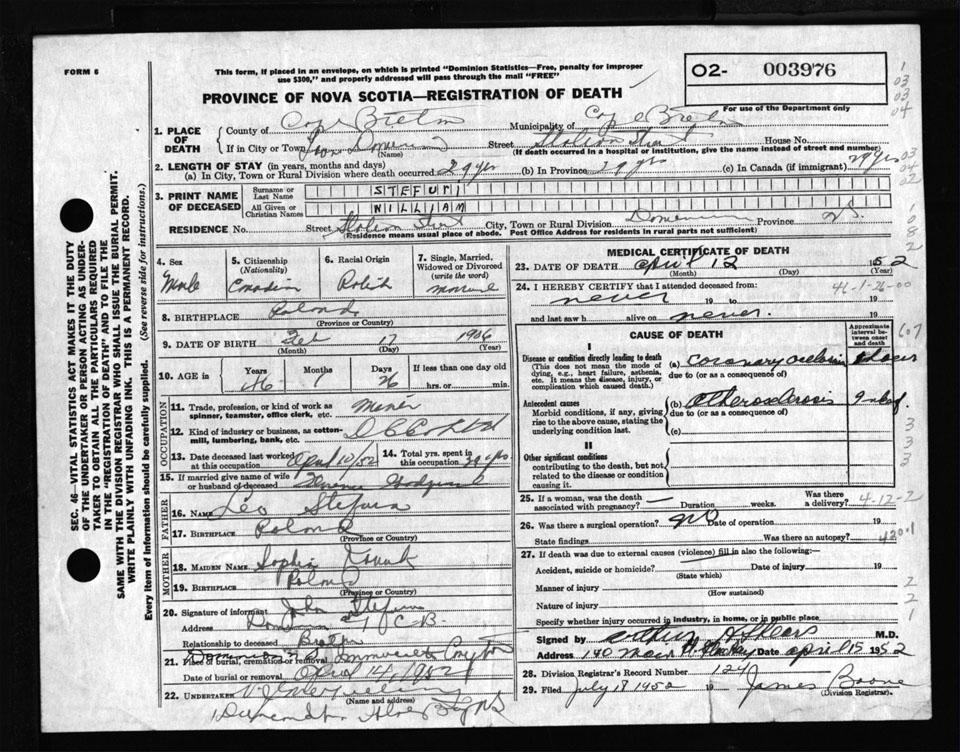 FORM 6
This form, if placed in an envelope, on which is printed "Dominion Statistics—Free, penalty for improper
use $300," and properly addressed will pass through the mail "FREE"
02- 003976
For use of the Department only
PROVINCE OF NOVA SCOTIA—REGISTRATION OF DEATH
1. PLACE OF DEATH
County of Cape Breton Municipality of Cape Breton
If in City or Town Dominion (Name) Street Station Street House No.
(If death occurred in a hospital or institution, give the name instead of street and number)
2. LENGTH OF STAY (in years, months and days)
(a) In City, Town or Rural Division where death occurred 29 yrs (b) In Province 29 yrs (c) In Canada (if immigrant) 29 yrs
3. PRINT NAME OF DECEASED
Surname or Last Name STEFURI
All Given or Christian Names WILLIAM
RESIDENCE No. Street Station Street City, Town or Rural Division Dominion Province N.S.
(Residence means usual place of abode. Post Office Address for residents in rural parts not sufficient)
4. Sex Male
5. Citizenship (Nationality) Canadian
6. Racial Origin Polish
7. Single, Married, Widowed or Divorced (write the word)
8. BIRTHPLACE Poland
(Province or Country)
9. DATE OF BIRTH Feb 17 1906
(Month) (Day) (Year)
10. AGE in Years 46 Months 1 Days 26 If less than one day old hrs. or min.
OCCUPATION
11. Trade, profession, or kind of work as spinner, teamster, office clerk, etc. Miner
12. Kind of industry or business, as cotton-mill, lumbering, bank, etc.
13. Date deceased last worked at this occupation April 10/52
14. Total yrs. spent in this occupation
15. If married give name of wife or husband of deceased
FATHER
16. NAME Leo Stefura
17. BIRTHPLACE Poland
(Province or Country)
MOTHER
18. MAIDEN NAME Sophia
19. BIRTHPLACE Poland
(Province or Country)
20. Signature of informant John Stefura
Address Dominion C-B.
Relationship to deceased Brother
21. Place of burial, cremation or removal
Date of burial or removal April 14, 1952
22. UNDERTAKER
(Name and address)
MEDICAL CERTIFICATE OF DEATH
23. DATE OF DEATH April 12 1952
(Month) (Day) (Year)
24. I HEREBY CERTIFY that I attended deceased from:
46-1-26-00
never 19 to 19
and last saw h alive on never. 19
CAUSE OF DEATH
Approximate interval between onset and death
I
Disease or condition directly leading to death
(This does not mean the mode of dying, e.g., heart failure, asthenia, etc. It means the disease, injury, or complication which caused death.)
(a) coronary occlusion
due to (or as a consequence of)
Antecedent causes
Morbid conditions, if any, giving rise to the above cause, stating the underlying condition last.
(b) atherosclerosis
due to (or as a consequence of)
(c)
II
Other significant conditions
contributing to the death, but not related to the disease or condition causing it.
25. If a woman, was the death associated with pregnancy? Duration weeks. Was there a delivery? 4-12-2
26. Was there a surgical operation? no Date of operation 19
State findings Was there an autopsy? 4201
27. If death was due to external causes (violence) fill in also the following:—
Accident, suicide or homicide? Date of injury 19
(State which)
Manner of injury
(How sustained)
Nature of injury
Specify whether injury occurred in industry, in home, or in public place
Signed by M.D.
Address 140 Main Date April 15 1952
28. Division Registrar's Record Number 124
29. Filed July 18 1952 19 James Boone
(Division Registrar).
SEC. 46—VITAL STATISTICS ACT MAKES IT THE DUTY
OF THE UNDERTAKER OR PERSON ACTING AS UNDER-
TAKER TO OBTAIN ALL THE PARTICULARS REQUIRED
IN THE "REGISTRATION OF DEATH" AND TO FILE THE
SAME WITH THE DIVISION REGISTRAR WHO SHALL ISSUE THE BURIAL PERMIT.
WRITE PLAINLY WITH UNFADING INK. THIS IS A PERMANENT RECORD.
Every item of information should be carefully supplied. (See reverse side for instructions.)